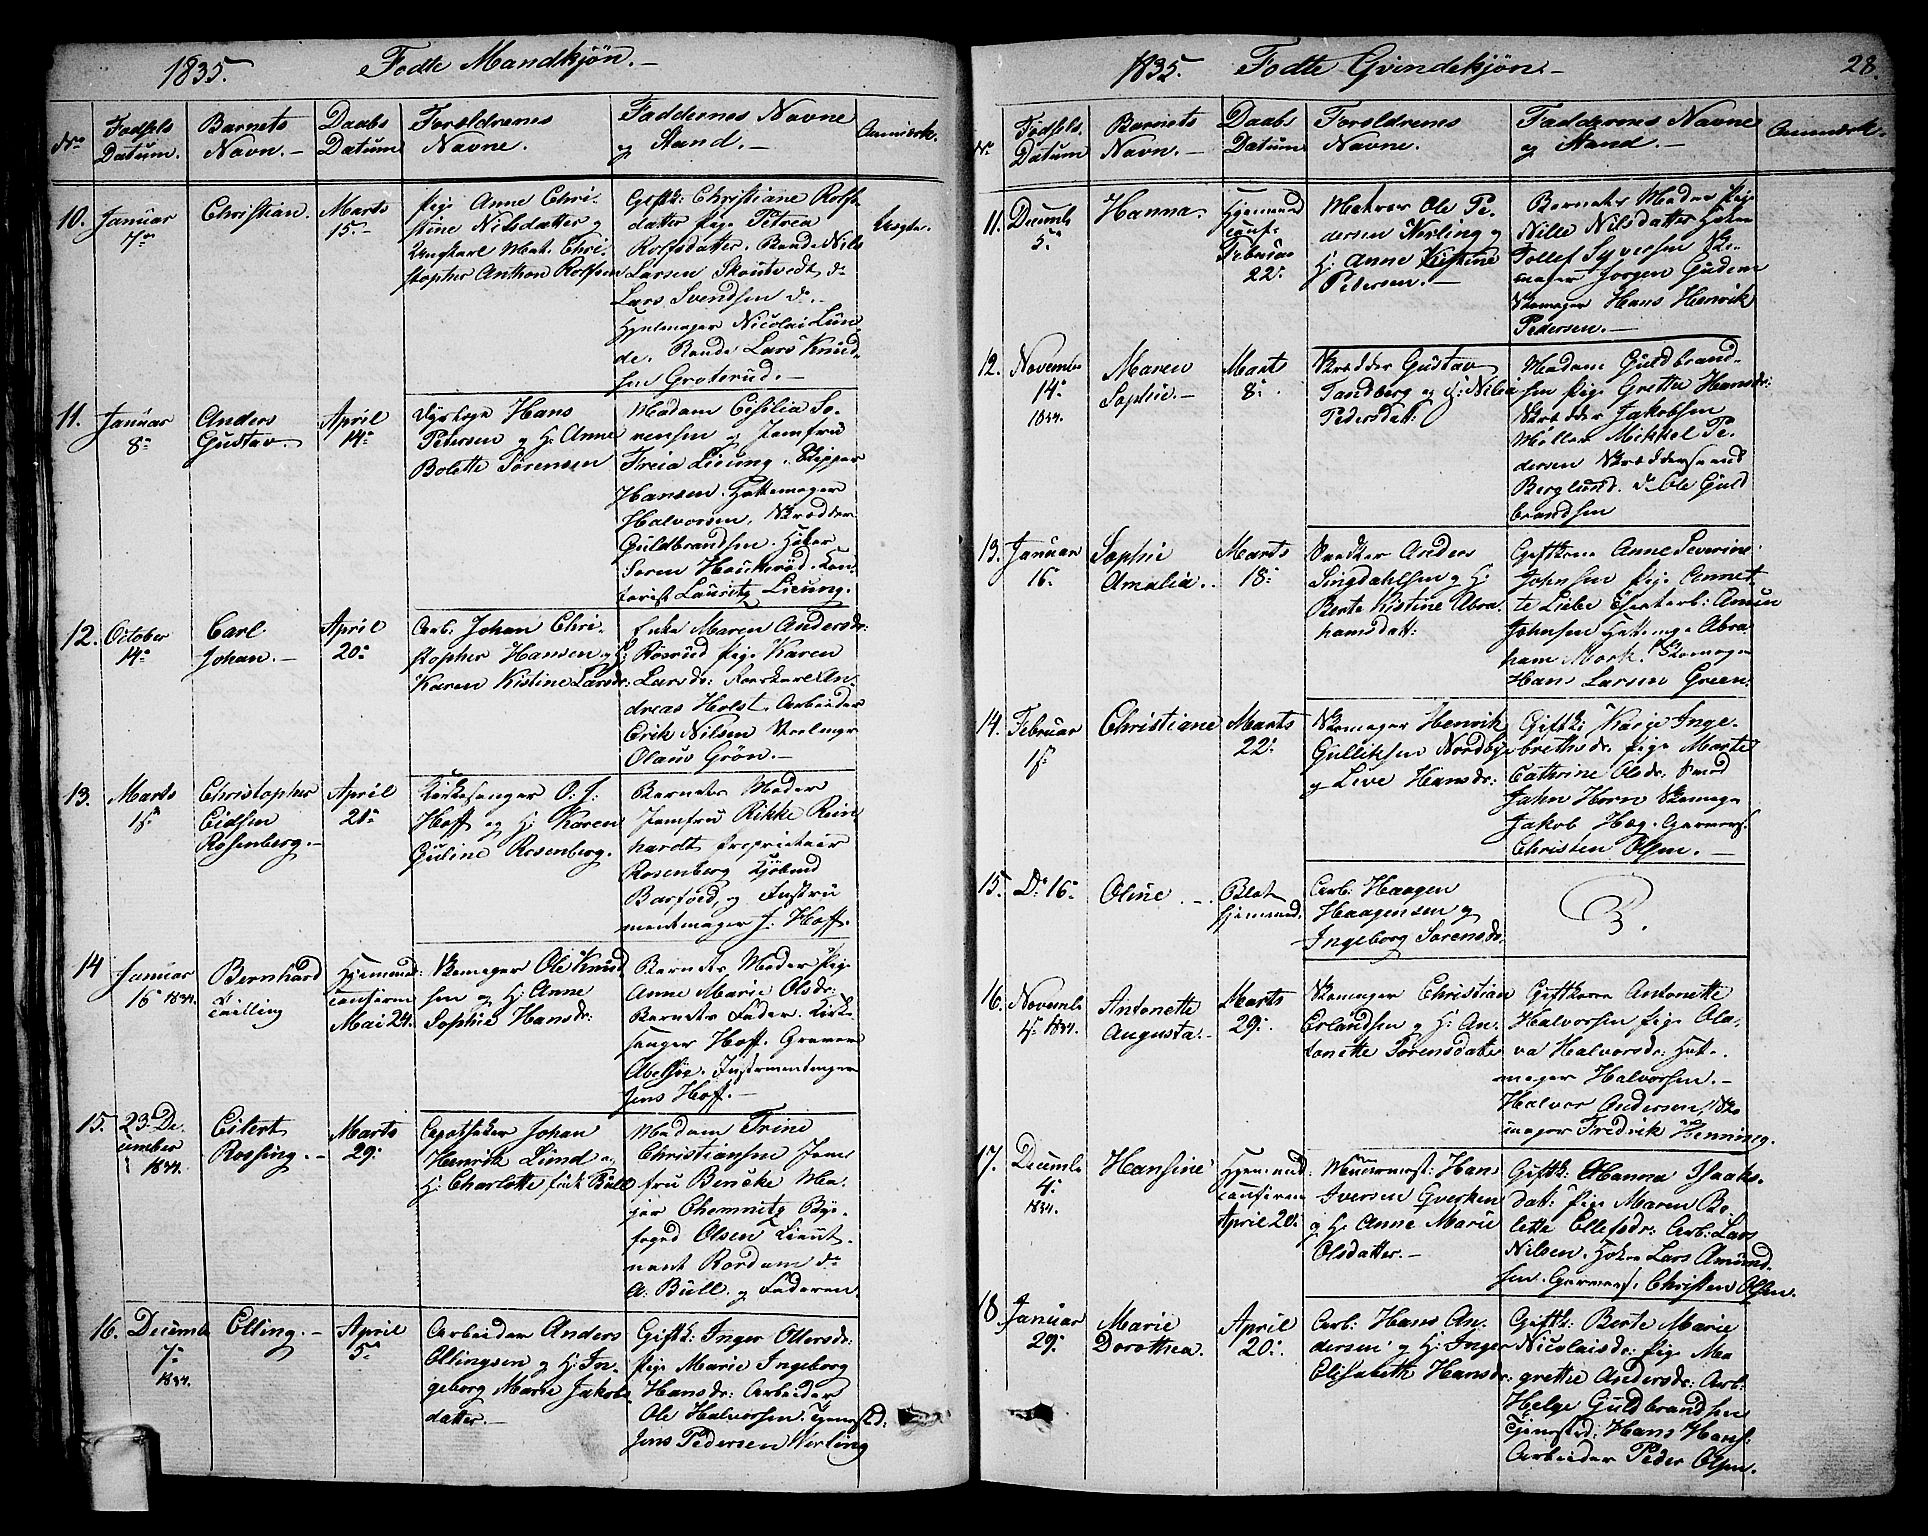 1835. Fodte Mandkjøn.
No
Fødsels Datum.
Barnets Navn.
Daabs Datum
Forældrenes Navne.
Faddernes Navne og Stand.
Anmærk.
10. Januar 7de
Christian.
Marts 15.
Pige Anne Chri-
stine Nilsdatter og
Ungkarl Mat. Chri-
stopher Anthon Rolfsen
Giftk: Christiane Rolfs-
datter Pige Petrea
Rolfsdatter. Bonde Nils
Larsen Skoutvedt, do
Lars Svendsen do.
Hjulmager Nicolai Lun-
de. Bonde Lars Knud-
sen Groterud.
Uægte.
11. Januar 8de
Anders Gustav.
April 14de
Hans
Petersen og H: Anne
Bolette Sørensen
Madam Cesilia Sø-
rensen og Jomfru
Freia Lieung. Skipper
Hansen. Hattemager
Halvorsen, Skrædder
Guldbrandsen. Høker
Soren Houkerød. Kon-
torist Lauritz Lieung.
12. October 14de
Carl Johan.
April 20de
Arb: Johan Chri-
stopher Hansen og H:
Karen Kistine Larsdr:
Enke Maren Andersdr:
Rösrud Pige Karen
Larsdr: An-
dreas Holst. Arbeider
Erik Nilsen
Olaus Grön.
13. Marts 1ste
Christopher Eidsen Rosenberg.
April 21de
Kirkesanger O. J.
Hoff og H: Karen
Guline Rosenberg.
Barnets Moder
Jomfru Rikke Rein
hardt Proprietair
Rosenberg Kjöbmd
Barfoed, og Instru
mentmager J. Hoff.
14 Januar 16 1834.
Bernhard Tvilling
Hjemmed: confirm Mai 24.
Skomager Ole Knud
sen og H: Anne
Sophie Hansdr:
Barnets Moder Pige
Anne Marie Olsdr:
Barnets Fader. Kirk-
sanger Hoff. Graver
Abelsen. Instrumentmager
Jens Hoff.
15. 23. December 1834.
Eilert Rossing.
Marts 29:
Apotheker Johan
Henrik Lund og
H: Charlotte født Bull
Madam Trine
Christiansen Jom
fru Bencke Ma-
jor Chemnitz By-
foged Olsen Lieut-
nant Rordam do
A: Bull. og Faderen.
16. Decembr 7de 1834.
Elling.
April 5de
Arbeider Anders
Ellingsen og H: In-
geborg Marie Jakobs
datter.
Giftk: Inger Ollersdr:
Pige Marie Ingeborg
Hansdr: Arbeider
Ole Halvorsen. Tjenested:
Jens Pedersen Verling
1835. Fodte Qvindekjøn.
28.
Nr.
Fødsels Datum
Barnets Navn.
Daabs Datum
Forældrenes Navne.
Faddernes Navne og Stand.
Anmærk.
11. Decembr 5te
Hanna.
Hjemmed conf. Februar 22:
Matros Ole Pe-
dersen Verling og
H: Anne Kistine
Pedersen.
Barnets Moder Pige
Nille Nilsdatter Høker
Tollef Syversen Sko-
mager Jorgen Gudem
Skomager Hans Henrik
Pedersen.
12. Novembr 14de 1834.
Maren Sophie.
Marts 8:
Skrædder Gustav
Tandberg og H: Nilia
Pedersdatt:
Madam Guldbrand-
sen Pige Grethe Hansdr:
Skrædder Jakobsen
Møller Mikkel Pe-
dersen Skræddersvend
Berglund. do Ole Guld
brandsen
13. Januar 16de
Sophie Amalia.
Marts 18:
Anders
Singdahlsen og H:
Berte Kistine Abra-
hamsdatt:
Giftkone Anne Severine
Johnsen Pige Annet
te Liebe
Johnsen Hattemgr Abra-
ham Mork. Skomager
Hans Larsen Green.
14. Februar 1ste
Christiane
Marts 22:
Skomager Henrik
Gulliksen Nordbye
og Live Hansdr:
Giftk: Karje Inge-
brethsdr: Pige Marte
Cathrine Olsdr: Smed
John Horn Skomagr
Jakob Hög. Garvers:
Christen Olsen.
15. Do 16de
Oline.
Blot hjemmed.
Arb: Haagen
Haagensen og
Ingeborg Sorensdr:
16. Novembr 4de 1834.
Antonette Augusta.
Marts 29:
Skomager Christian
Erlandsen og H: An-
tonette Sörensdatter
Giftkone Antonette
Halvorsen Pige Ola-
va Halvorsdr: Hat-
mager Halvorsen.
Halvor Andersen, Sko
mager Fredrik Henning.
17. Decembr 4de 1834.
Hansine
Hjemmed confirm April 20:
Muurmest: Hans
Iversen Qverken
og H: Anne Marie
Olsdatter.
Giftk: Hanna Isaaks-
datt: Pige Maren Bo-
lette Ellefsdr: Arb: Lars
Nilsen. Høker Lars Amund-
sen. Garvers: Christen Olsen.
18. Januar 29:
Marie Dorothea.
April 20:
Arb: Hans An-
dersen og H: Inger
Elisabeth Hansdr:
Giftk: Berte Marie
Nicolaisdr: Pige Ma
grethe Andersdr: Arb:
Helge Guldbrandsen
Tjenested: Hans Hans:
Arbeider Peder Olsen.